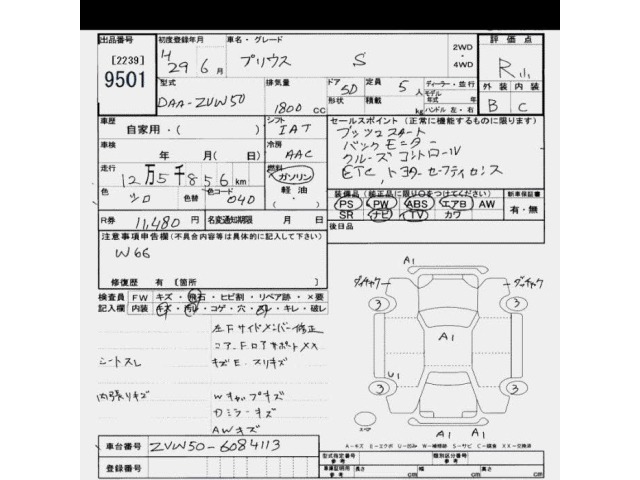 出品番号 初度登録年月 車名・グレード 2WD ・ 4WD 評価点
[2239] 9501 H 29年 6月 プリウス S R小
型式 排気量 ドア 5D 定員 5人 ディーラー・並行 外装 内装
DAA-ZVW50 1800 CC 形状 積載 kg モデル 年式 年 ハンドル 左・右 B C
車歴 自家用・( ) シフト IAT セールスポイント (正常に機能するものに限ります)
プッシュスタート
車検 年 月(日) 冷房 AAC バックモニター
クルーズコントロール
走行 12万5千856km 燃料 ガソリン・軽油・ ETC,トヨタセーフティセンス
色 シロ 色替 色コード 040 装備品 (純正品に限り○をつけてください) 新車保証書
PS PW ABS エアB AW 有・無
R券 11,480円 名変通知期限 月 日 SR ナビ TV カワ
注意事項申告欄(不具合内容等は具体的に記入して下さい) 後日品
W66
修復歴 有 [箇所 ]
検査員記入欄 FW キズ・飛石・ヒビ割・リペア跡・×要
内装 キズ・汚レ・コゲ・穴・スレ・キレ・破レ
左Fサイドメンバー修正
シートスレ キズE.スリキズ
内張リキズ Wキャップキズ
Dミラーキズ
AWキズ
A1
ダッチャク ダッチャク
3 3
A1
A1
U1
3 3
A1 A1
A-キズ E-エクボ U-凹み W-補修跡 S-サビ C-腐食 XX-交換済
車台番号 ZVW50-6084113
登録番号
型式指定番号 参考 類別区分番号 参考
車庫証明用 参考 長さ cm 幅 cm 高さ cm